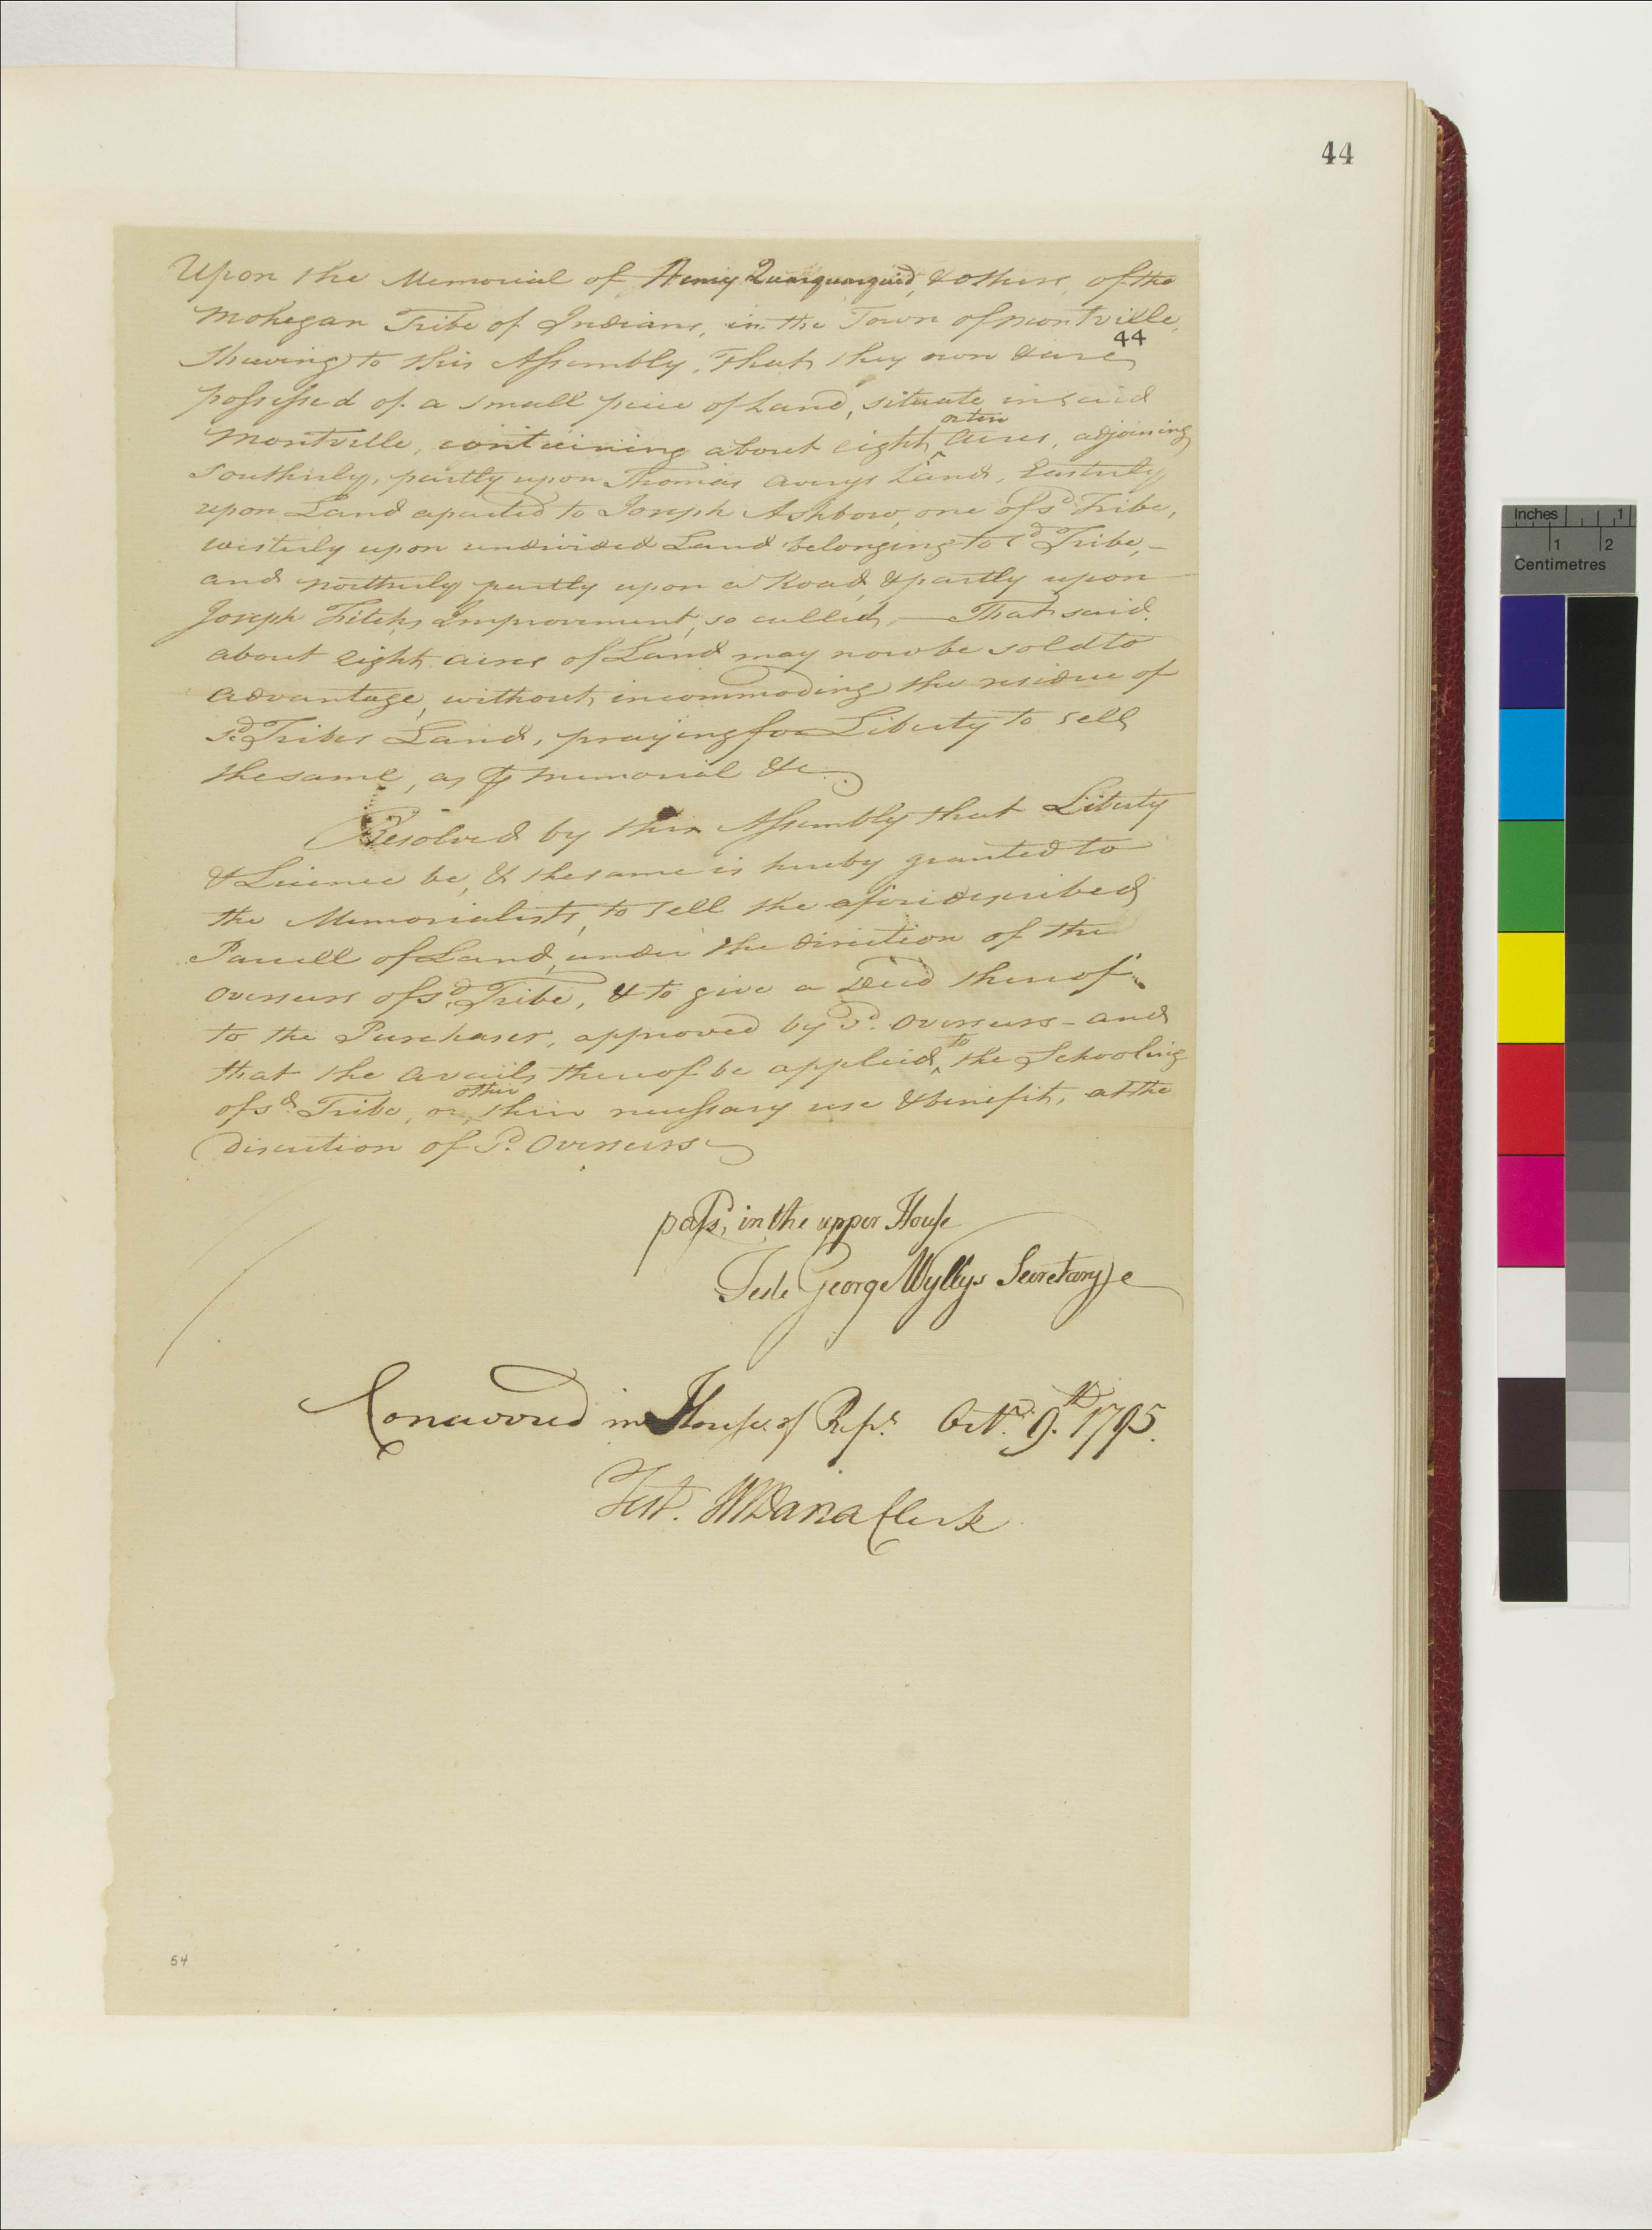 44
Upon the Memorial of Henry Quaquaquid, & others, of the
Mohegan Tribe of Indians, in the Town of Montville,
44
Shewing to this Assembly, That they own & are
possessed of a small piece of Land, situate in said
or ten
Montville, containing about eight ^ acres, adjoining
Southerly, partly upon Thomas Averys Land, Easterly
upon Land aparted to Joseph Ashbow, one of sd Tribe,
westerly upon undivided Land belonging to sd Tribe, –
and northerly partly upon a Road, & partly upon
Joseph Fitchs Improvement, so called, — That said
about eight acres of Land may now be sold to
advantage, without incommoding the residue of
sd Tribes Land, praying for Liberty to sell
the same, as ⅌ memorial &c.
Resolved by this Assembly that Liberty
& Licence be, & the same is hereby granted to
the Memorialists, to sell the afore described
Parcell of Land, under the direction of the
Overseers of sd Tribe, & to give a Deed thereof
to the Purchaser, approved by sd. Overseers – and
to
that the avails thereof be applied ^ the Schooling
other
of sd Tribe, or their necessary use & benefit, at the
Discretion of sd. Overseers
pass'd, in the upper House
Teste George Wyllys Secretary
Concurred in House of Reps. Octr. 9.th 1795.
Test. W Dana Clerk
54
Inches 1
1 2
Centimetres